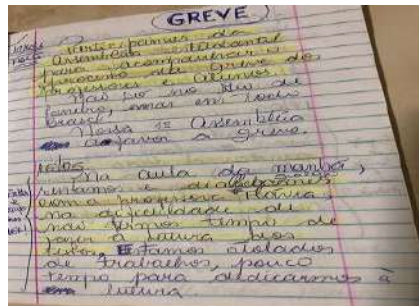 GREVE
Participamos da
assembleia estudantil
para acompanhar o
processo de greve dos
professores e alunos.
Não só no Rio de
Janeiro, mas em todo
Brasil.
Nossa 1ª Assembleia
a favor a greve.
Na aula da manhã,
sentamos e dialogamos
com a professora
na dificuldade de
não termos tempo de
fazer a leitura dos
textos. Estamos atolados
de trabalhos, pouco
tempo para dedicarmos à
leitura